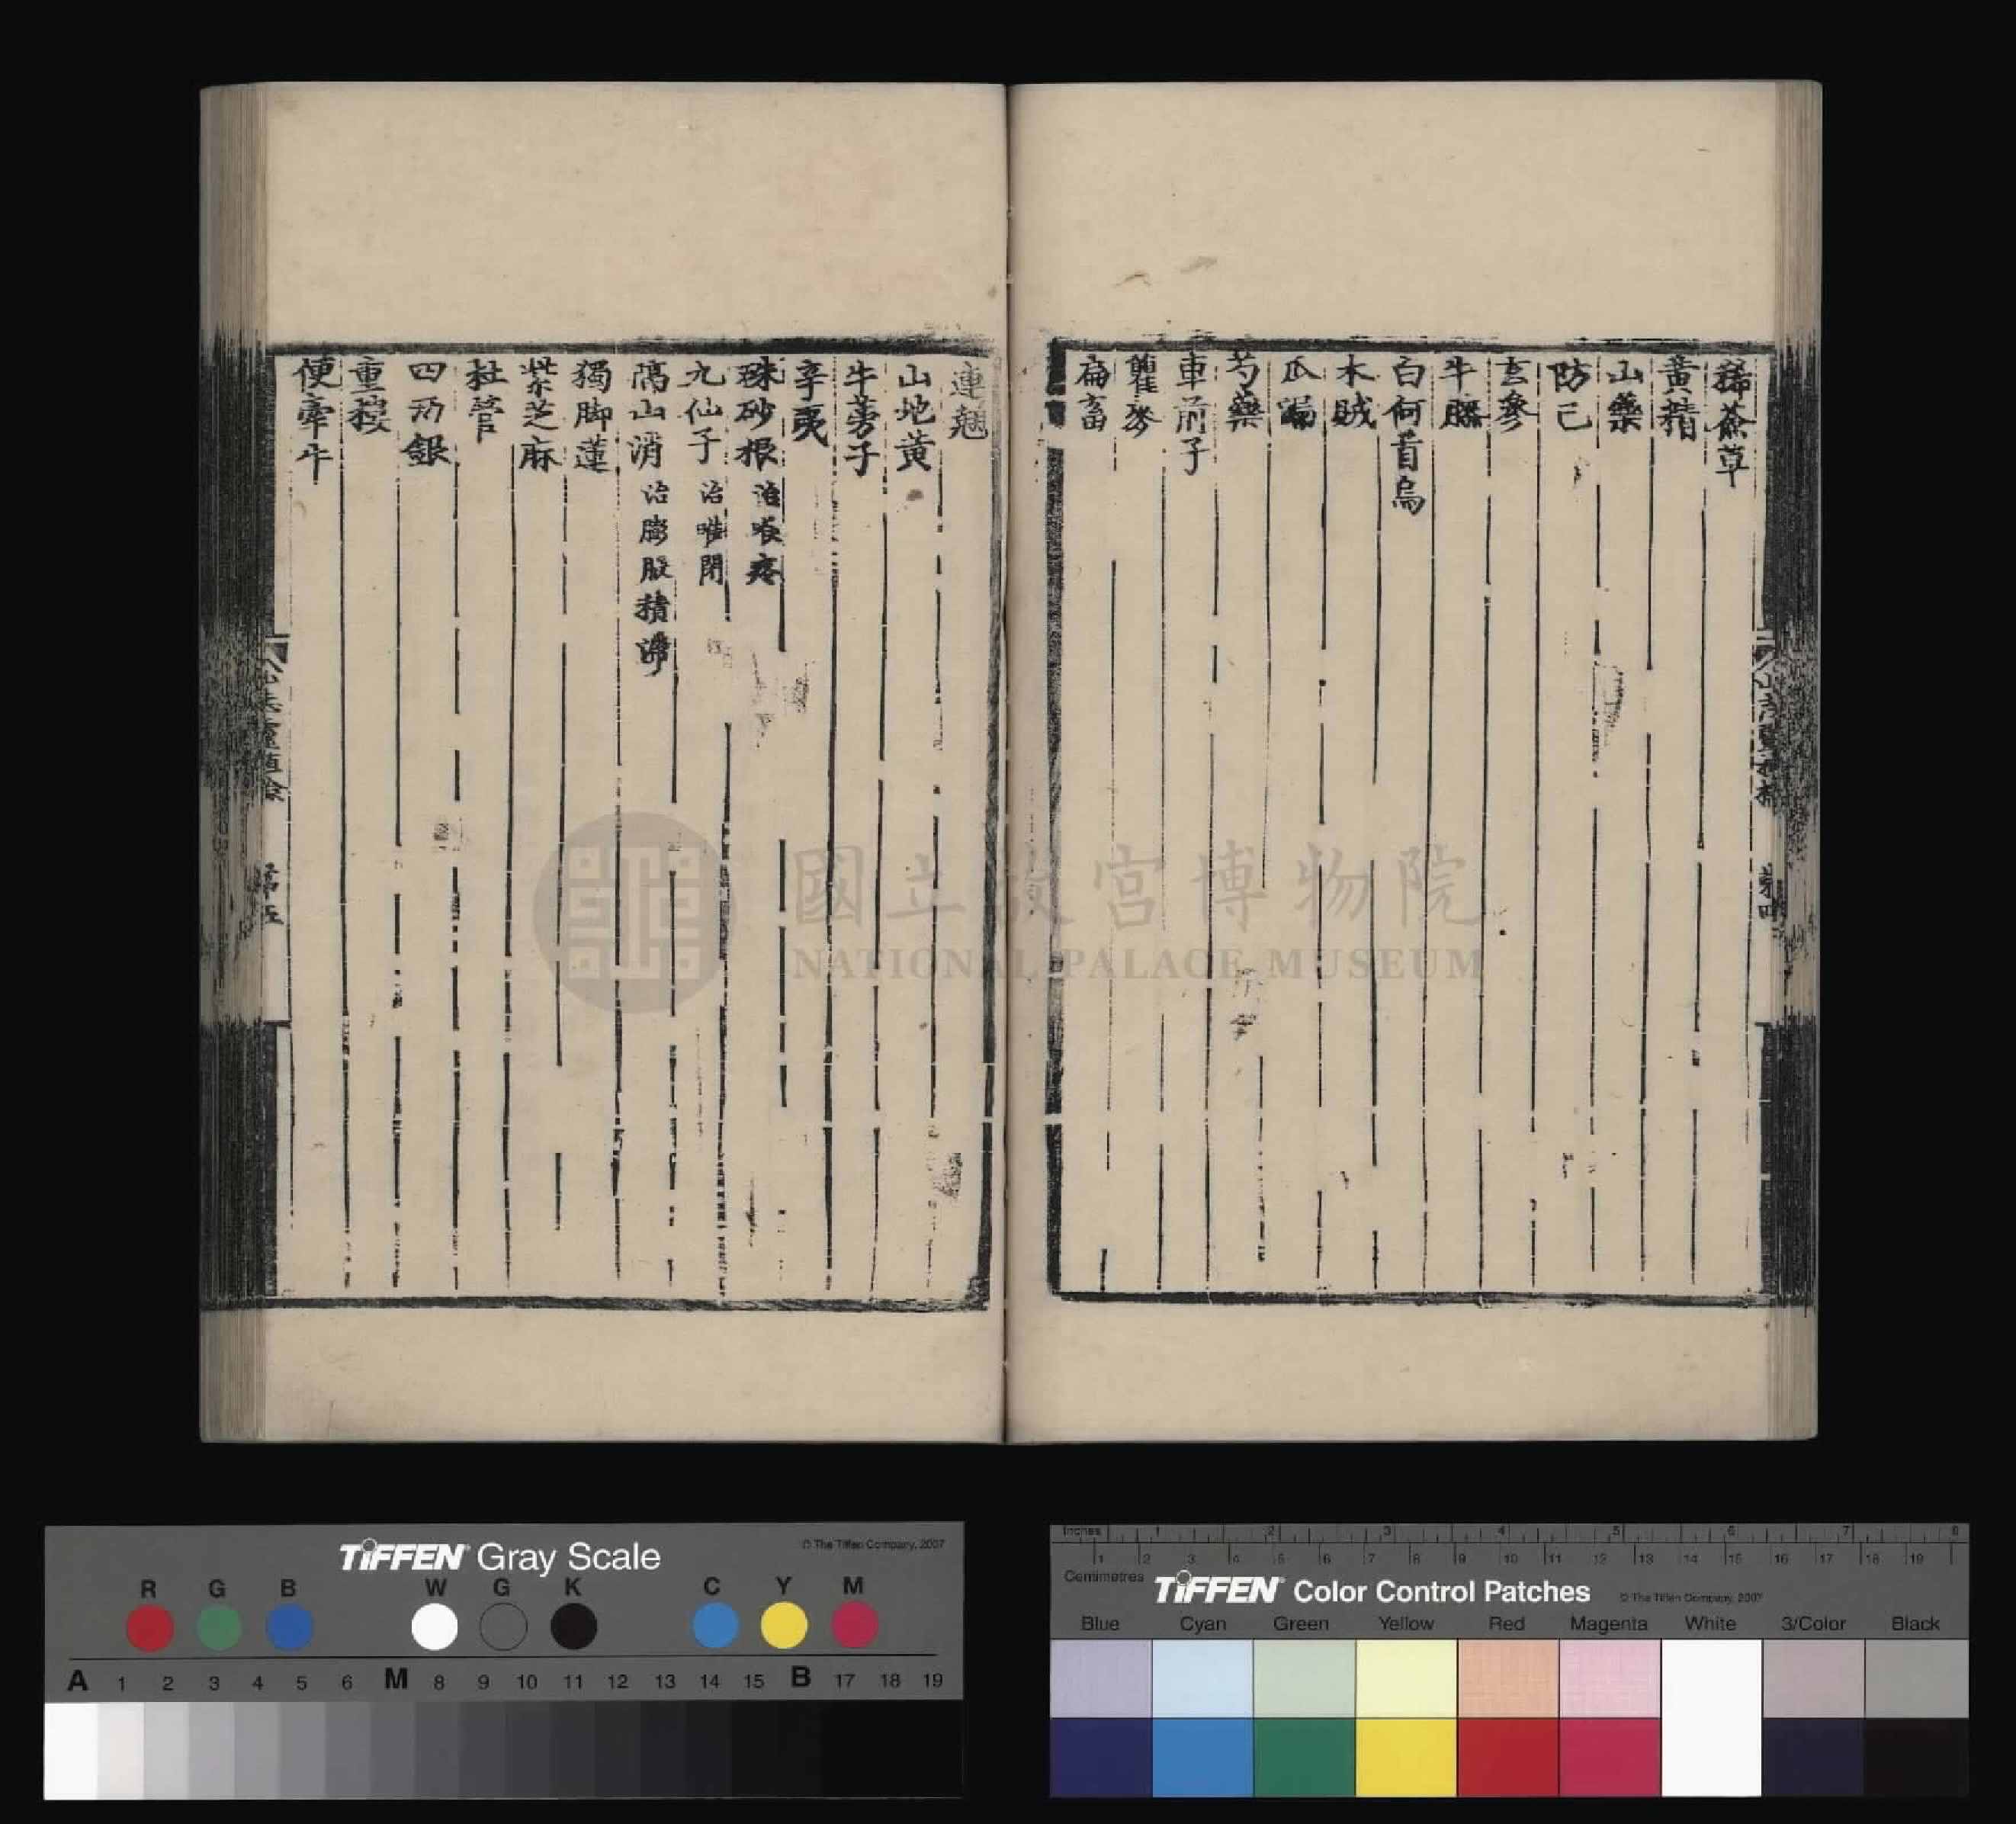 豨薟草
黃精
山藥
防己
玄參
牛膝
白何首烏
木賊
瓜蔞
芍藥
車前子
瞿麥
扁畜
連翹
山地黃
牛蒡子
辛夷
硃砂根 治喉疼
九仙子 治喉閉
隔山消 治膨脹積滯
獨脚蓮
紫芝麻
杜管
四 銀
重樓
便牽牛
山志 第四
山志 第五
國立故宮博物院
NATIONAL PALACE MUSEUM
TIFFEN Gray Scale
© The Tiffen Company, 2007
R G B W G K C Y M
A 1 2 3 4 5 6 M 8 9 10 11 12 13 14 15 B 17 18 19
Inches 1 2 3 4 5 6 7 8
1 2 3 4 5 6 7 8 9 10 11 12 13 14 15 16 17 18 19
Centimetres
TIFFEN Color Control Patches
© The Tiffen Company, 2007
Blue Cyan Green Yellow Red Magenta White 3/Color Black